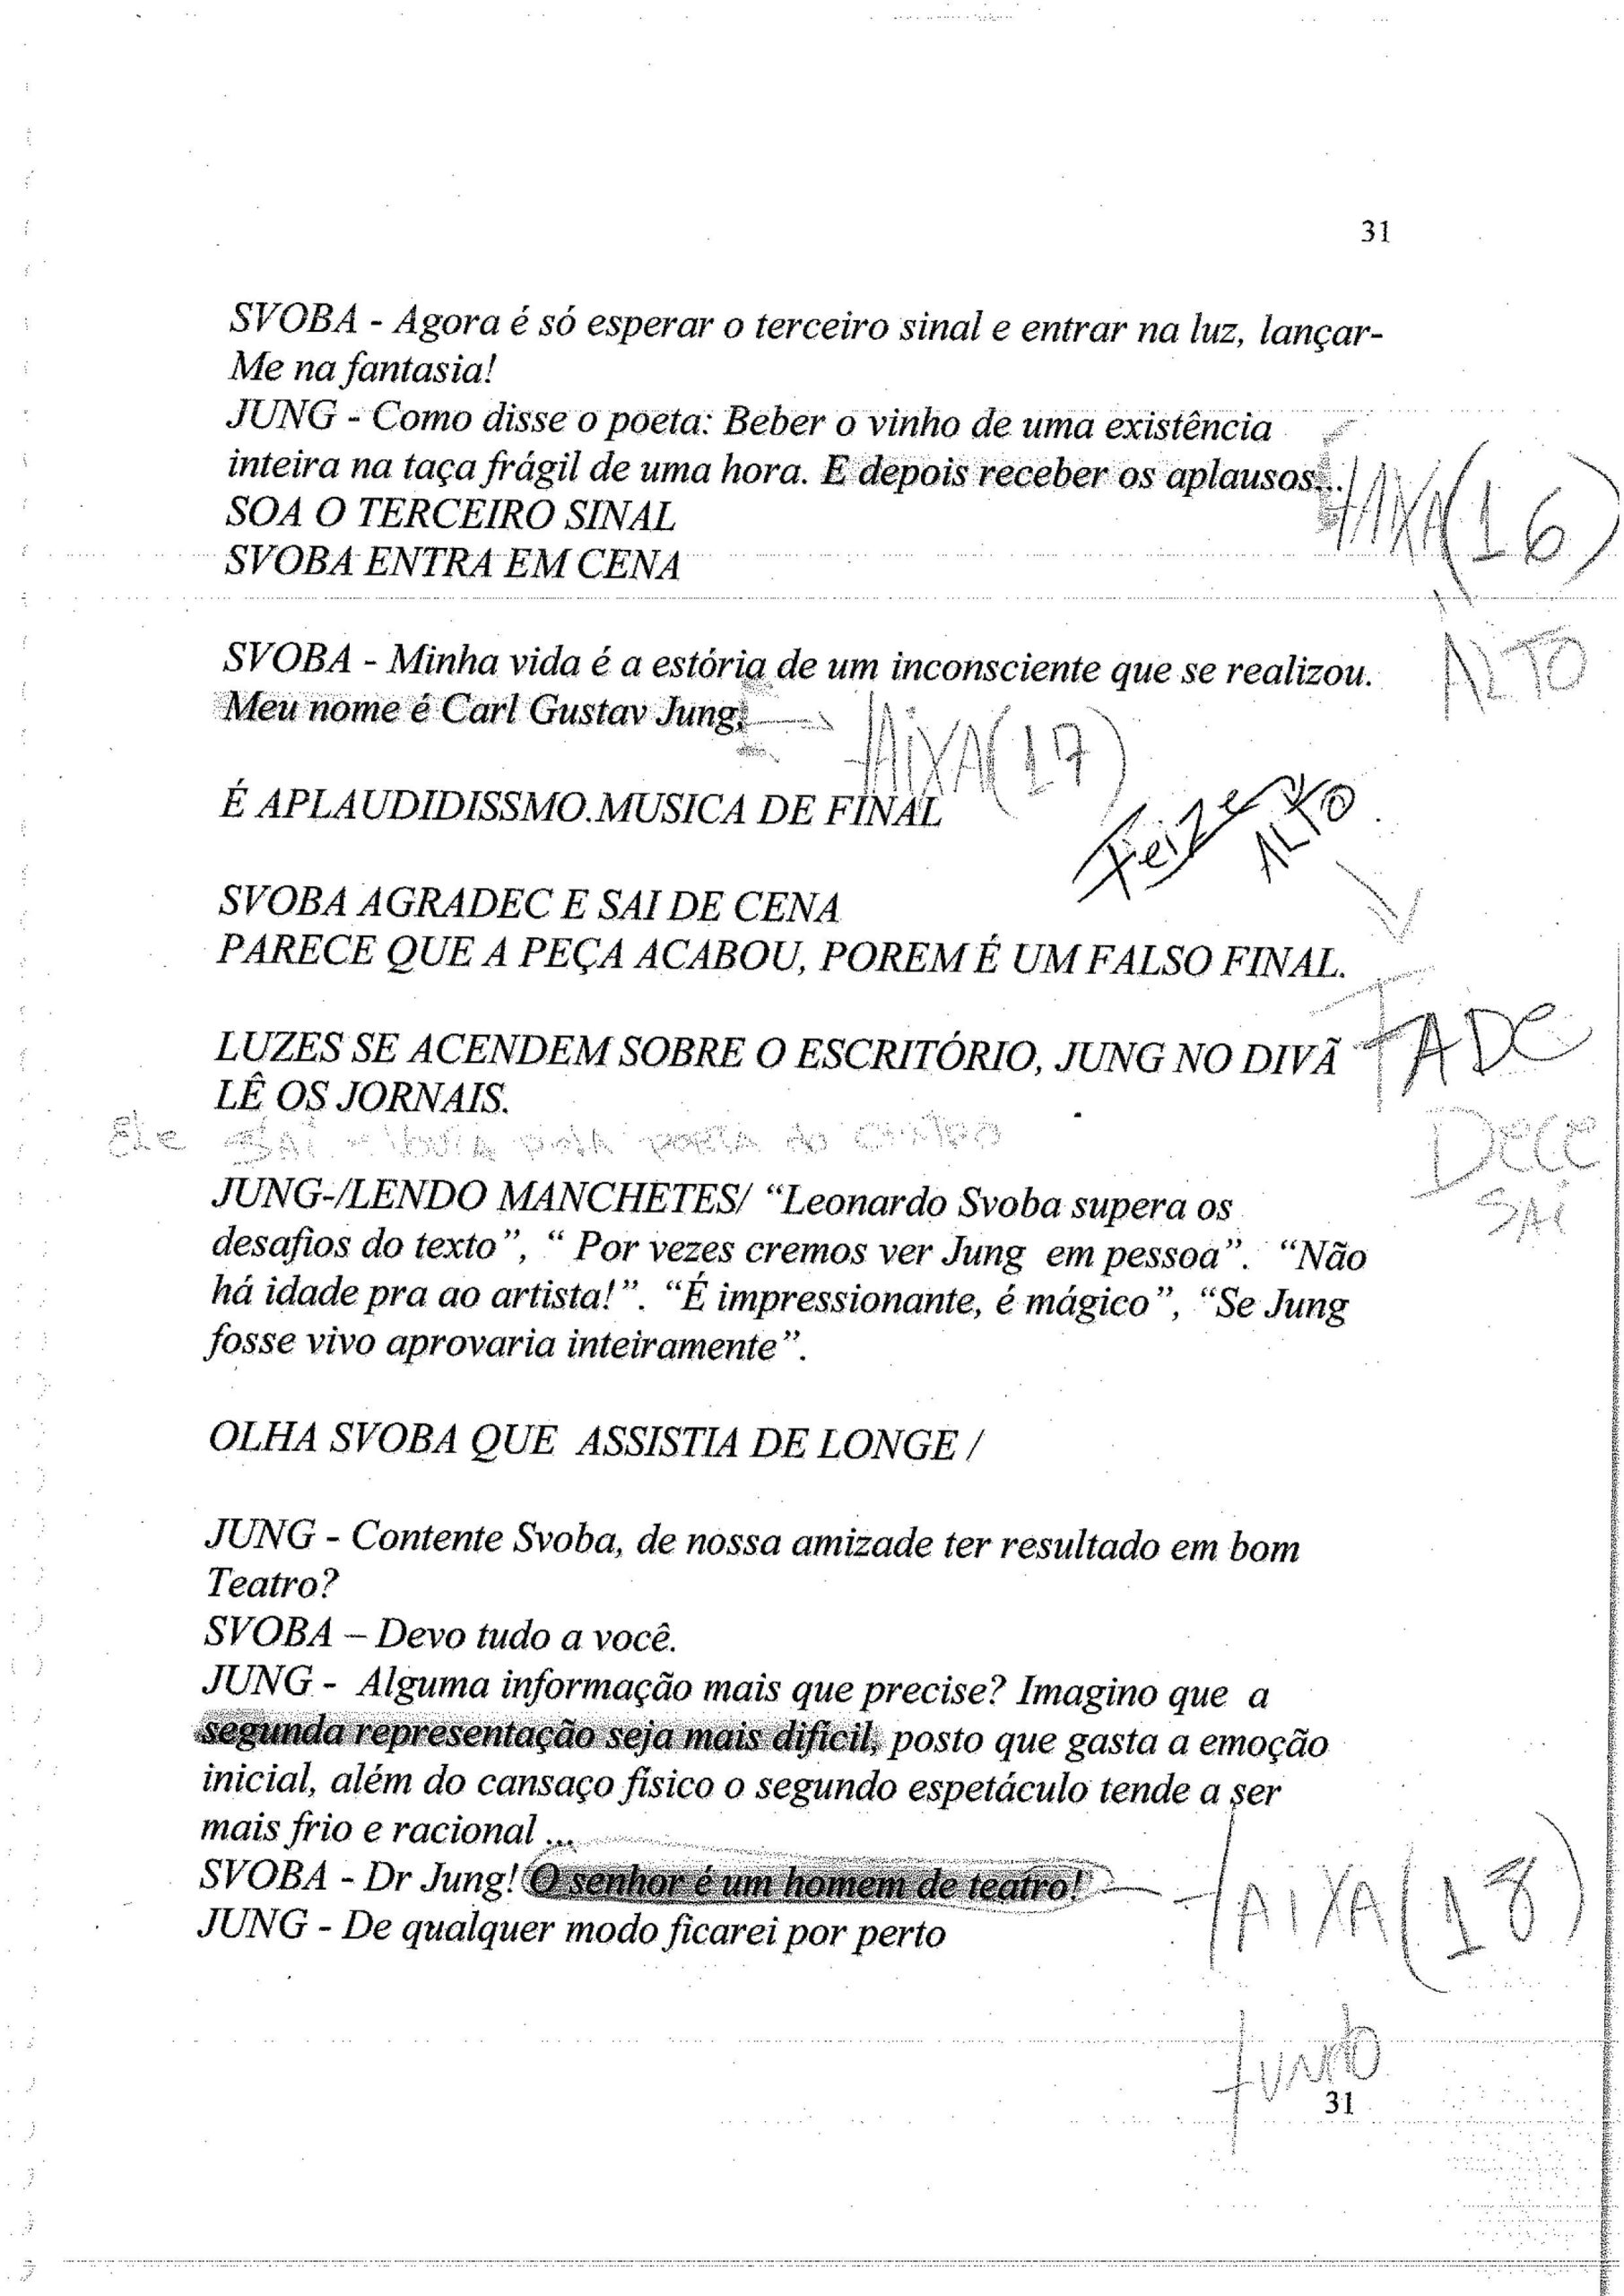 31
SVOBA - Agora é só esperar o terceiro sinal e entrar na luz, lançar-
Me na fantasia!
JUNG - Como disse o poeta: Beber o vinho de uma existência
inteira na taça frágil de uma hora. E depois receber os aplausos...
FAIXA (16)
SOA O TERCEIRO SINAL
SVOBA ENTRA EM CENA
ALTO
SVOBA - Minha vida é a estória de um inconsciente que se realizou.
Meu nome é Carl Gustav Jung.
FAIXA (17)
É APLAUDIDISSMO.MUSICA DE FINAL
ALTO
SVOBA AGRADEC E SAI DE CENA
PARECE QUE A PEÇA ACABOU, POREM É UM FALSO FINAL.
LUZES SE ACENDEM SOBRE O ESCRITÓRIO, JUNG NO DIVÃ
FADE
LÊ OS JORNAIS.
DECE
SAI
Ele SAI
JUNG-/LENDO MANCHETES/ “Leonardo Svoba supera os
desafios do texto”, “ Por vezes cremos ver Jung em pessoa”. “Não
há idade pra ao artista!”. “É impressionante, é mágico”, “Se Jung
fosse vivo aprovaria inteiramente”.
OLHA SVOBA QUE ASSISTIA DE LONGE /
JUNG - Contente Svoba, de nossa amizade ter resultado em bom
Teatro?
SVOBA – Devo tudo a você.
JUNG - Alguma informação mais que precise? Imagino que a
segunda representação seja mais difícil, posto que gasta a emoção
inicial, além do cansaço físico o segundo espetáculo tende a ser
mais frio e racional ...
SVOBA - Dr Jung! O senhor é um homem de teatro!
FAIXA (18)
JUNG - De qualquer modo ficarei por perto
fundo
31